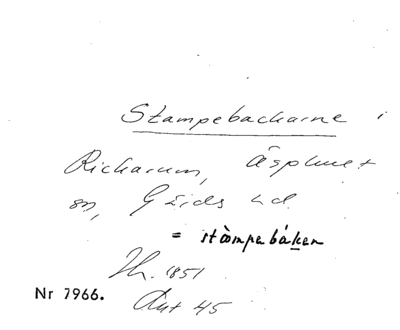 Stampebackarne i
Richarum, Äsphult
sn, Gärds hd.
= stàmpebáken
Jh. 1851
Nr 7966.
Ant 45